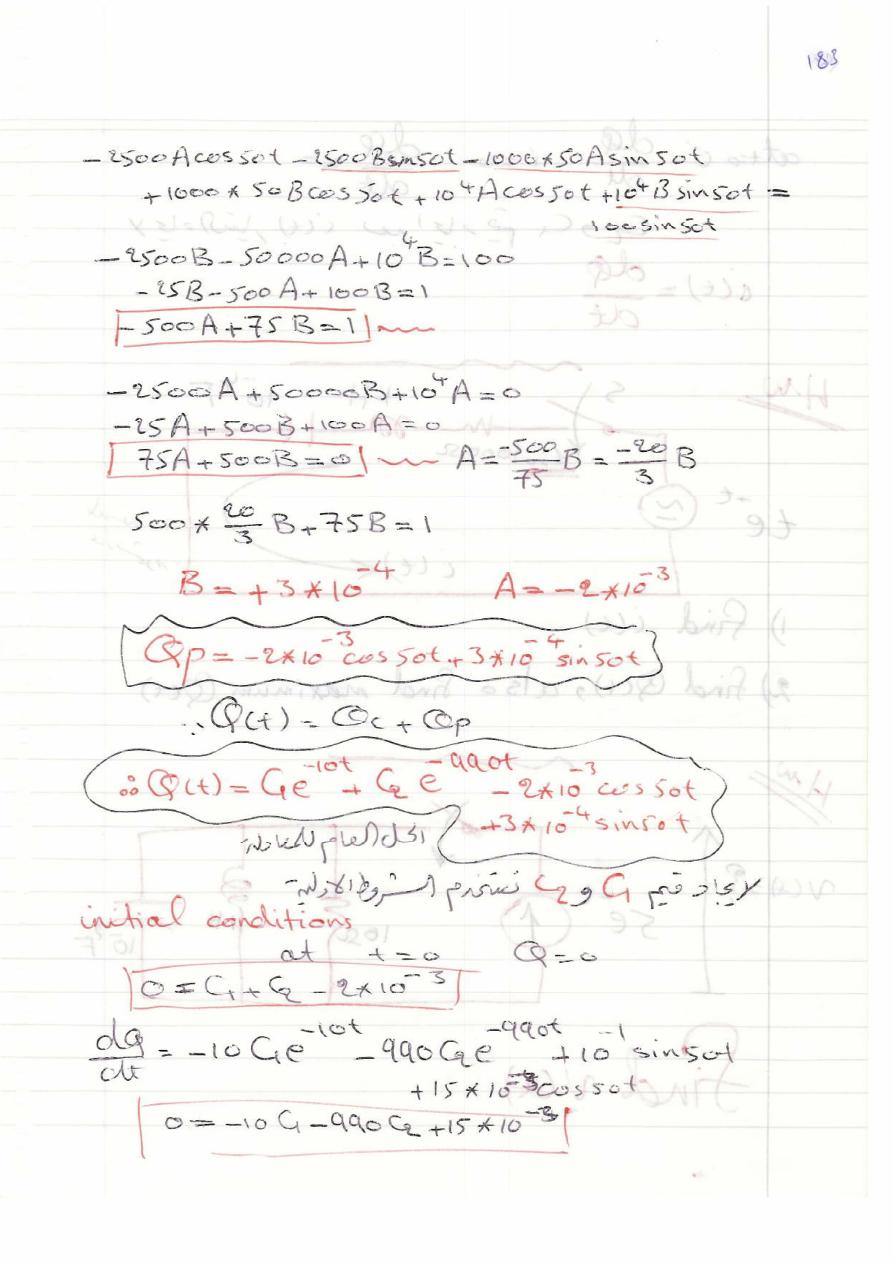 183
-2500A cos 50t - 2500B sin 50t - 1000*50A sin 50t
+1000*50B cos 50t + 10^4 A cos 50t + 10^4 B sin 50t =
100 sin 50t
-2500B - 50000A + 10^4 B = 100
-25B - 500A + 100B = 1
-500A + 75B = 1
-2500A + 50000B + 10^4 A = 0
-25A + 500B + 100A = 0
75A + 500B = 0 A = -500/75 B = -20/3 B
500 * 20/3 B + 75B = 1
B = +3*10^-4 A = -2*10^-3
Qp = -2*10^-3 cos 50t + 3*10^-4 sin 50t
∴ Q(t) = Qc + Qp
∴ Q(t) = C1 e^-10t + C2 e^-990t - 2*10^-3 cos 50t
+3*10^-4 sin 50t
الحل العام للمعادلة
لايجاد قيم C1 و C2 نستخدم الشروط الاولية
initial conditions
at t=0 Q=0
0 = C1 + C2 - 2*10^-3
dQ/dt = -10 C1 e^-10t - 990 C2 e^-990t + 10^-1 sin 50t
+ 15*10^-3 cos 50t
0 = -10 C1 - 990 C2 + 15*10^-3